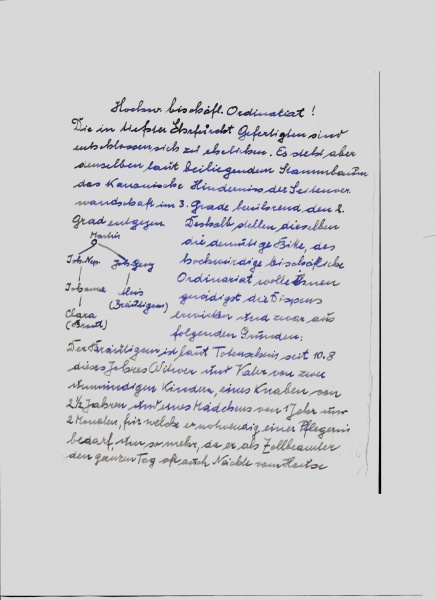 Hochw. bischöfl. Ordinariat!
Die in tiefster Ehrfurcht Gefertigten sind
entschlossen sich zu ehelichen. Es steht aber
denselben laut beiliegendem Stammbaum
das Kanonische Hinderniss der Seitenver
wandschaft im 3. Grade berührend den 2.
Grad entgegen. Deshalb stellen dieselben
Martin
die demütige Bitte, das
Joh. Nep. Joh. Georg
hochwürdige bischöfliche
Ordinariat wolle Ihnen
Johanna Alois
gnädigst die Dispens
(Bräutigam)
Clara
erwirken und zwar aus
(Braut)
folgenden Gründen:
Der Bräutigam ist laut Totenschein seit 10.8
dieses Jahres Witwer und Vater von zwei
unmündigen Kindern, eines Knaben von
2½ Jahren und eines Mädchens von 1 Jahr und
2 Monaten, für welche er notwendig einer Pflegerin
bedarf, um so mehr, da er als Zollbeamter
den ganzen Tag oft auch Nächte vom Hause